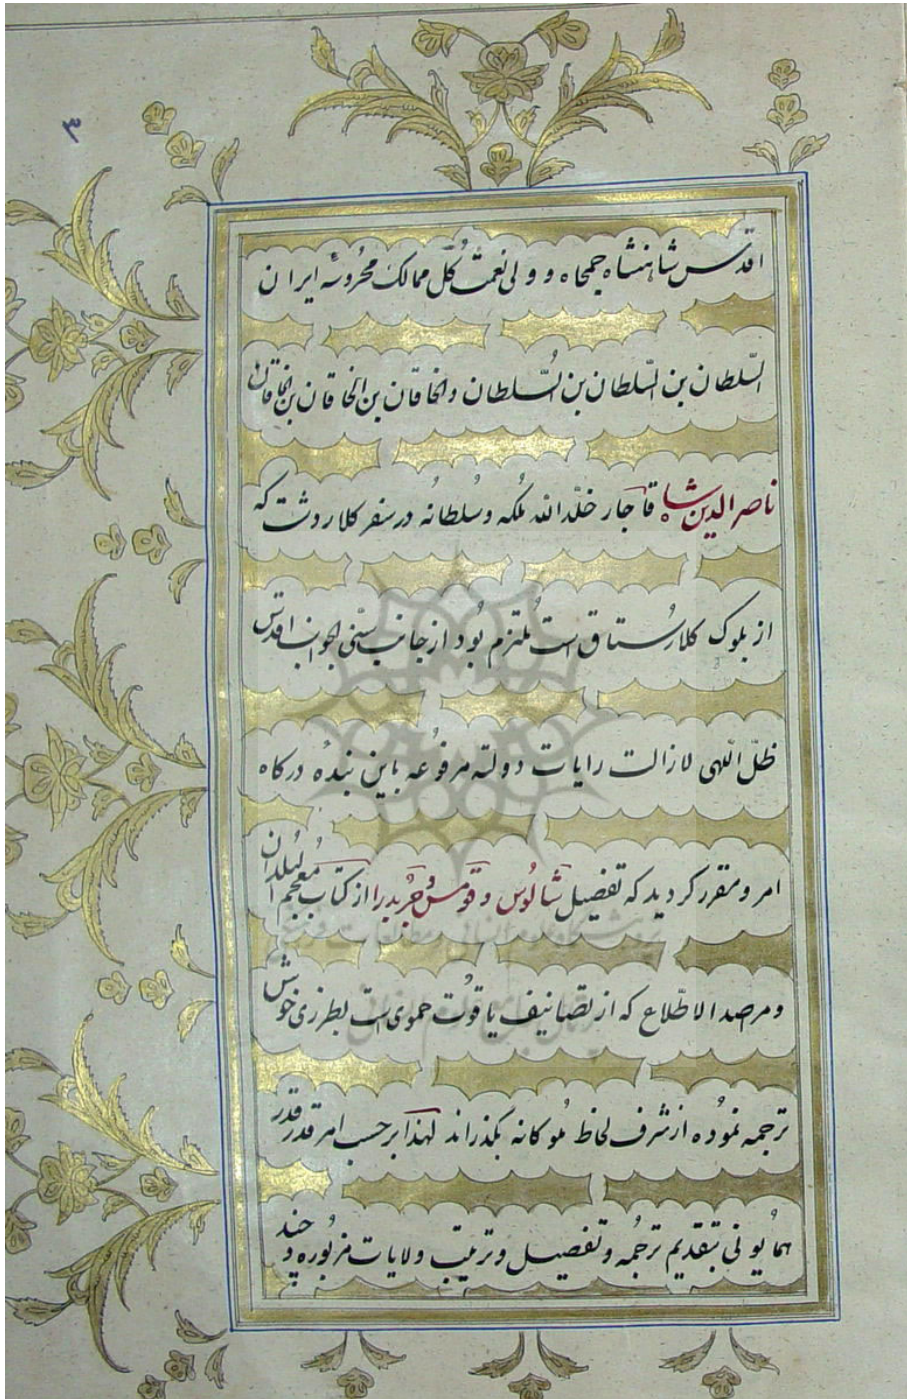 ۳
اقدس شاهنشاه جمجاه و ولی نعمت کل ممالک محروسهٔ ایران
السّلطان بن السّلطان بن السّلطان والخاقان بن الخاقان بن الخاقان
ناصرالدین شاه قاجار خلّد الله ملکه و سُلطانه در سفر کلاردشت که
از بلوک کلارُستاق است مُلتزم بُود از جانب سنّی الجوانب اقدس
ظلّ اللّهی لازالت رایات دولته مرفُوعه باین بندهٔ درکاه
امر و مقرر کردید که تفصیل شالُوس و قومس و را از کتاب مُعجم البُلدان
و مرصد الاطّلاع که از تصانیف یاقوُت حموی است بطرزی خوش
ترجمه نمُوده از شرف لحاظ ملُوکانه بکذراند لهذا برحسب امر قدر قدر
همایُونی بتقدیم ترجمُه و تفصیل و ترتیب ولایات مزبُوره چند
پژوهشگاه علوم انسانی و مطالعات فرهنگی
پرتال جامع علوم انسانی